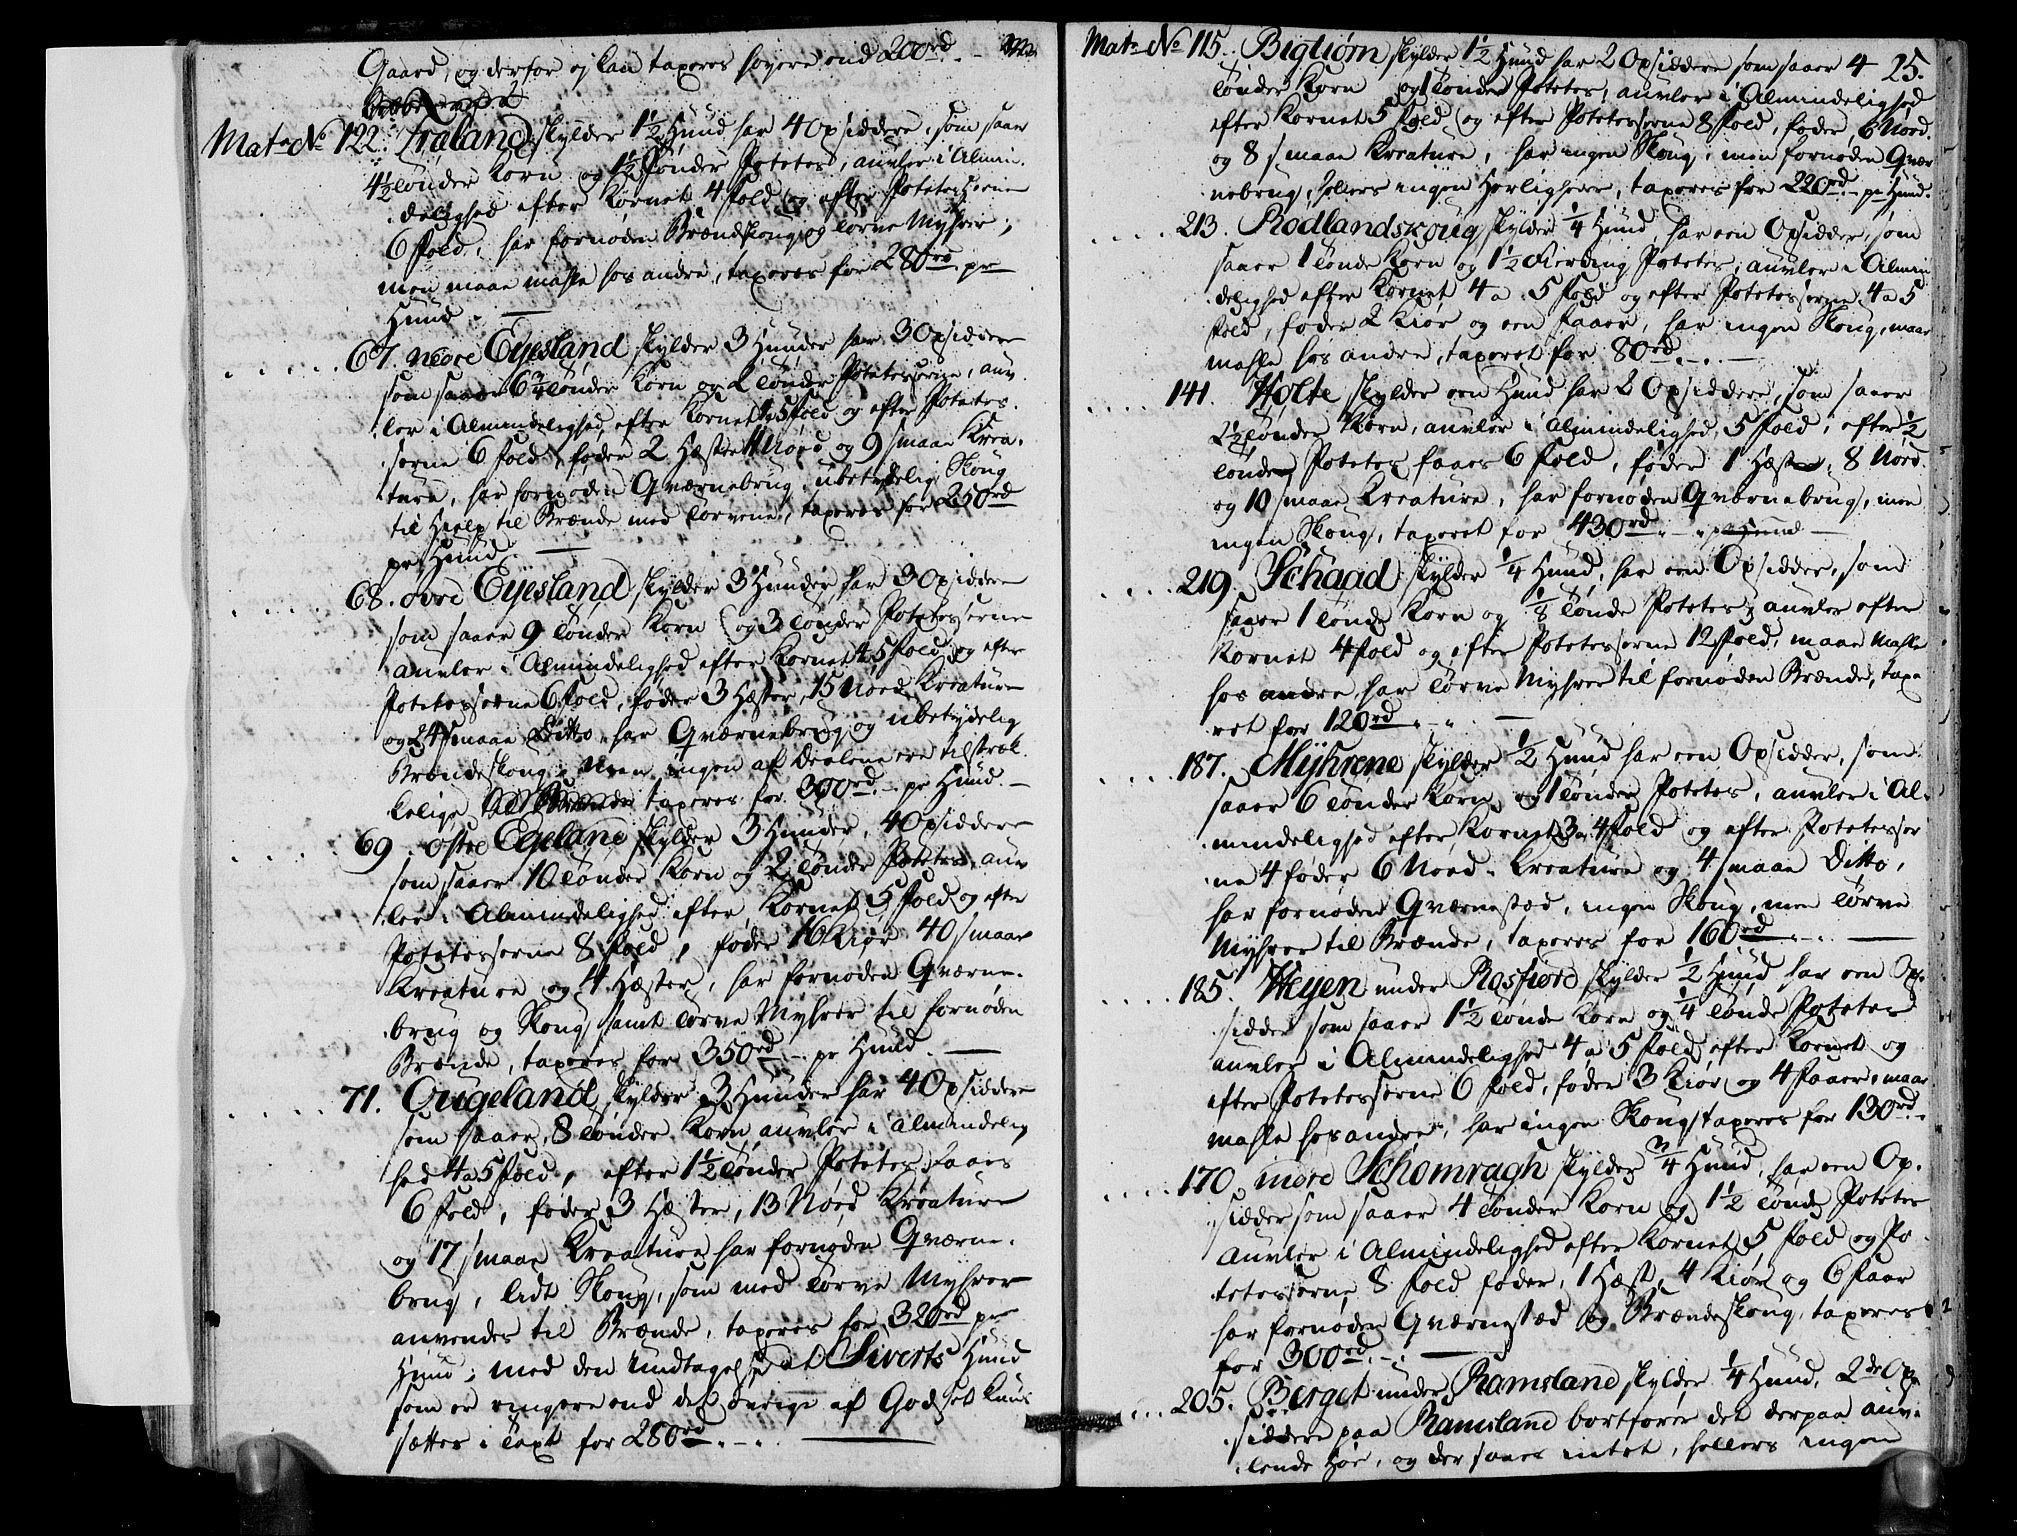 Gaard, og derfor ej kan taxeres høyere end 200rd. -
Mat: No 122. Fraland skylder 1½ Hund har 4 Opsiddere, som saaer
4½ tønder Korn og 1½ Tønder Potetes, auvler i Almin-
delighed efter Kornet 4 fold og efter Potetesserne
6 fold, har fornøden Brændskoug og Torve Myhrer,
men maae mahle hos andre, taxeres for 280rd pr
Hund. —
67. nedre Eyesland skylder 3 Hunder har 3 Opsiddere
som saaer 6¾ tønder Korn og 2 tønder Potetesserne, auv-
ler i Almindelighed efter Kornet 5 fold og efter Potetes-
serne 6 fold, føder 2 Hæster Nød og 9 smaae Krea-
ture, har fornøden Qværnebrug, ubetydelig Skoug
til Hielp til Brænde med Torvene, taxeres for 250rd
pr Hund. —
68. øvre Eyesland skylder 3 Hunder, har 3 Opsiddere
som saaer 9 tønder Korn og 3 tønder Potetesserne
auvler i Almindelighed efter Kornet 5 fold og efter
Potetesserne 6 fold, føder 3 Hæster, 15 Nød Kreature
og 24 smaae Ditto, har Qværnebrug og ubetydelig
Brændeskoug, Men ingen af Deelene ere tilstræk-
kelige taxeres for 300rd. - pr Hund. —
69. østre Egeland skylder 3 Hunder, 4 Opsiddere
som saaer 10 tønder Korn og 2 tønder Potetes, auv-
ler i Almindelighed efter Kornet 5 fold og efter
Potetesserne 8 fold, føder 16 Kiør 40 smaae
Kreature og 4 Hæster, har fornøden Qværne-
brug og Skoug samt Torve Myhrer til fornøden
Brænde, taxeres for 350rd. - pr Hund. —
71. Ougeland skylder 3 Hunder har 4 Opsiddere
som saaer 8 tønder Korn auvler i almindelig
hed 4 a 5 fold, efter 1½ tønder Potetes faaes
6 fold, føder 3 Hæster, 13 Nød Kreature
og 17 smaae Kreature har fornøden Qværne-
brug, lidt Skoug, som med Torve Myhrer
anvendes til Brænde, taxeres for 320rd pr
Hund; med den Undtagelse at Siverts Hund
som er ringere end det øvrige af Godset kuns
sættes i Taxt for 280rd. - . —
25.
Mat: No 115. Bigtiørn skylder 1½ Hund har 2 Opsiddere som saaer 4
tønder Korn og 1 tønder Potetes, auvler i Almindelighed
efter Kornet 5 fold og efter Potetesserne 8 fold, føder 6 Nød.
og 8 smaae Kreature, har ingen Skoug, men fornøden Qvær
nebrug, hellers ingen Herligheder, taxeres for 220rd. - pr Hund.
213. Rødlandskoug skylder ¼ Hund, har een Opsidder, som
saaer 1 tønde Korn og 1½ Fierding Potetes, auvler i Almin
delighed efter Kornet 4 a 5 fold og efter Potetesserne 4 a 5
fold, føder 2 Kiør og een Faaer, har ingen Skoug, maae
mahle hos andre, taxeret for 80rd. - . —
141. Holte skylder een Hund har 2 Opsiddere, som saaer
2½ tønder Korn, auvler i Almindelighed 5 fold, efter ½
tønde Potetes faaes 6 fold, føder 1 Hæst, 8 Nød.
og 10 smaae Kreature, har fornøden Qværnebrug, men
ingen Skoug, taxeret for 430rd. - pr Hund —
219. Schaad skylder ¼ Hund, har een Opsidder, som
saaer 1 tønde Korn og ⅛ tønde Potetes, auvler efter
Kornet 4 fold og efter Potetesserne 12 fold, maae mahle
hos andre, har Torve Myhrer til fornøden Brænde, taxe
ret for 120rd. - „ —
187. Myhrene skylder ½ Hund har een Opsidder, som
saaer 6 tønder Korn og 1 tønder Potetes, auvler i Al-
mindelighed efter Kornet 3 a 4 fold og efter Potetesser
ne 4 føder 6 Nød - Kreature og 4 smaae Ditto,
har fornøden Qværnestød, ingen Skoug, men Torve
Myhrer til Brænde, taxeres for 160rd. - . —
185. Weyen under Rosfiord skylder ½ Hund har een Op-
sidder som saaer 1½ tønde Korn og ¼ tønde Potetes
auvler i Almindelighed 4 a 5 fold efter Kornet og
efter Potetesserne 6 fold, føder 3 Kiør og 4 Faaer, maae
mahle hos andre, har ingen Skoug taxeres for 130rd. -
170. indre Schomragh skylder ¾ Hund, har een Op-
sidder som saaer 4 tønder Korn og 1½ tønde Potetes
Auvler i Almindelighed efter Kornet 5 fold og Po-
tetesserne 8 fold føder, 1 Hæst, 4 Kiør og 6 Faar
har fornøden Qværnestæd og Brændeskoug, taxeres
for 300rd. - . —
205. Berget under Ramsland skylder ¼ Hund, 2de Op-
siddere paa Ramsland bortfører det derpaa auv-
lende Høe, og der saaes intet, hellers ingen